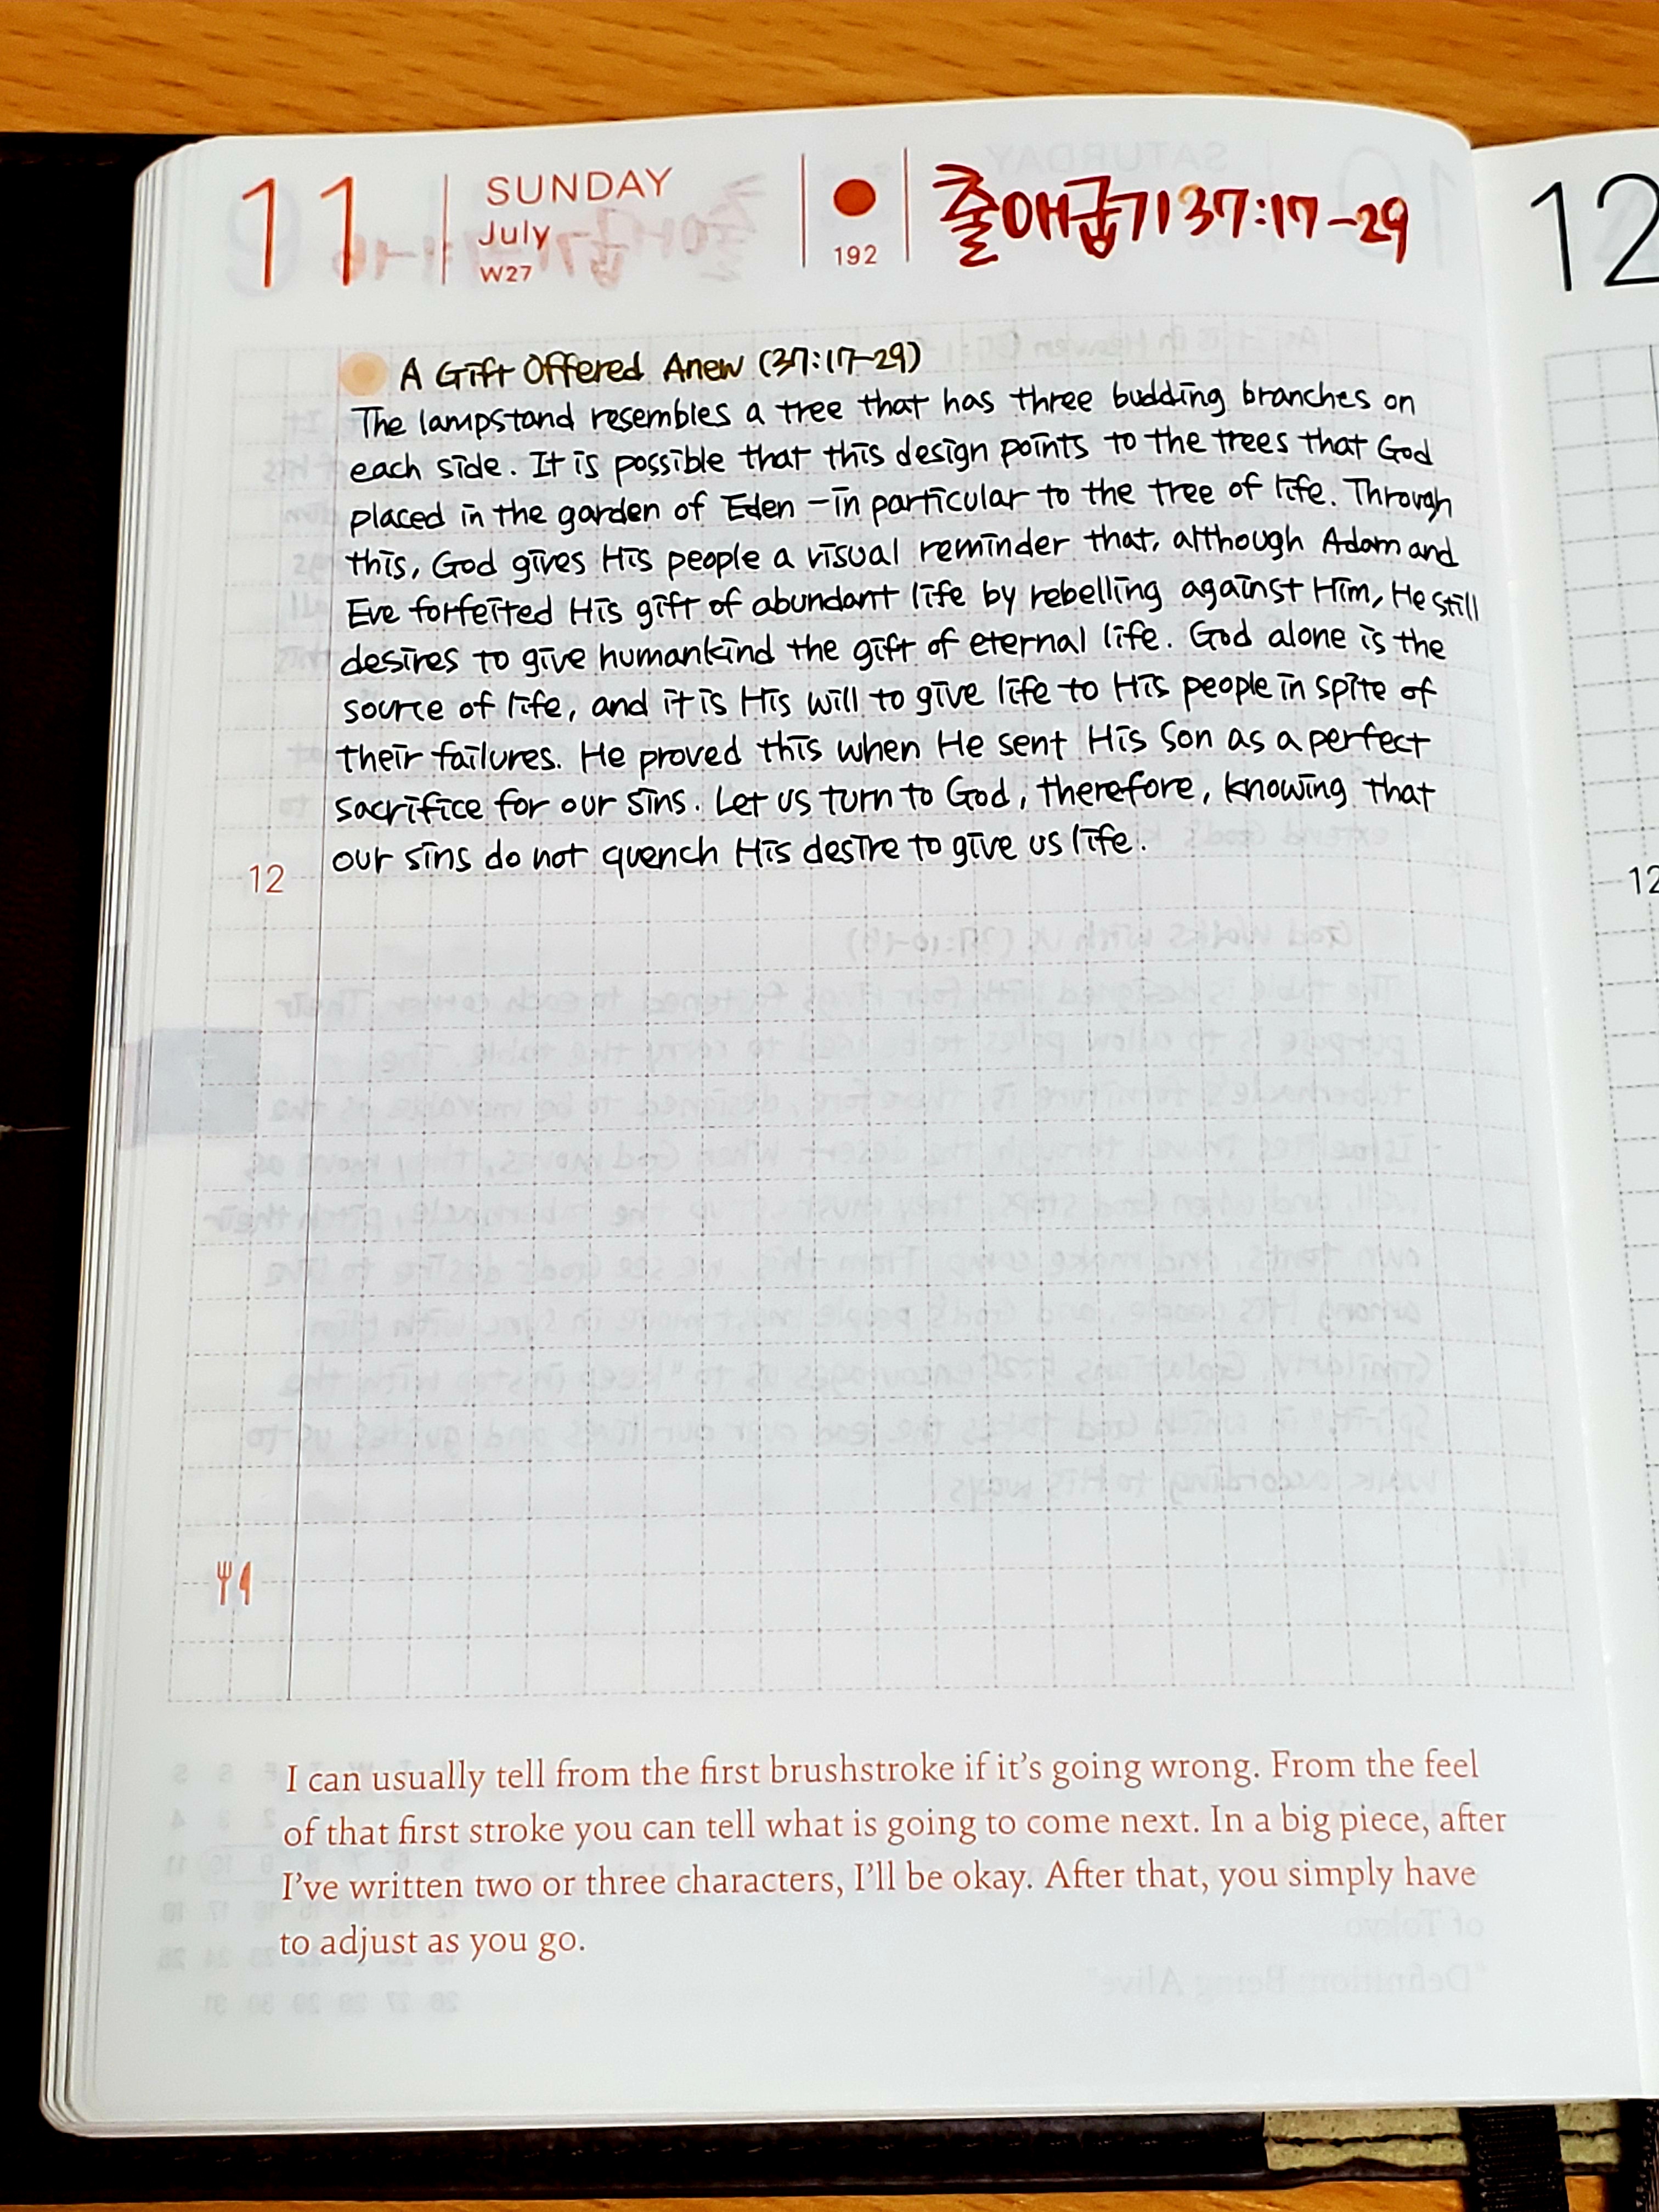 11
SUNDAY
July
W27
192
출애굽기 37:17-29
12
A Gift Offered Anew (37:17-29)
The lampstand resembles a tree that has three budding branches on
each side. It is possible that this design points to the trees that God
placed in the garden of Eden – in particular to the tree of life. Through
this, God gives His people a visual reminder that, although Adam and
Eve forfeited His gift of abundant life by rebelling against Him, He still
desires to give humankind the gift of eternal life. God alone is the
source of life, and it is His will to give life to His people in spite of
their failures. He proved this when He sent His Son as a perfect
sacrifice for our sins. Let us turn to God, therefore, knowing that
our sins do not quench His desire to give us life.
12
12
I can usually tell from the first brushstroke if it's going wrong. From the feel
of that first stroke you can tell what is going to come next. In a big piece, after
I've written two or three characters, I'll be okay. After that, you simply have
to adjust as you go.